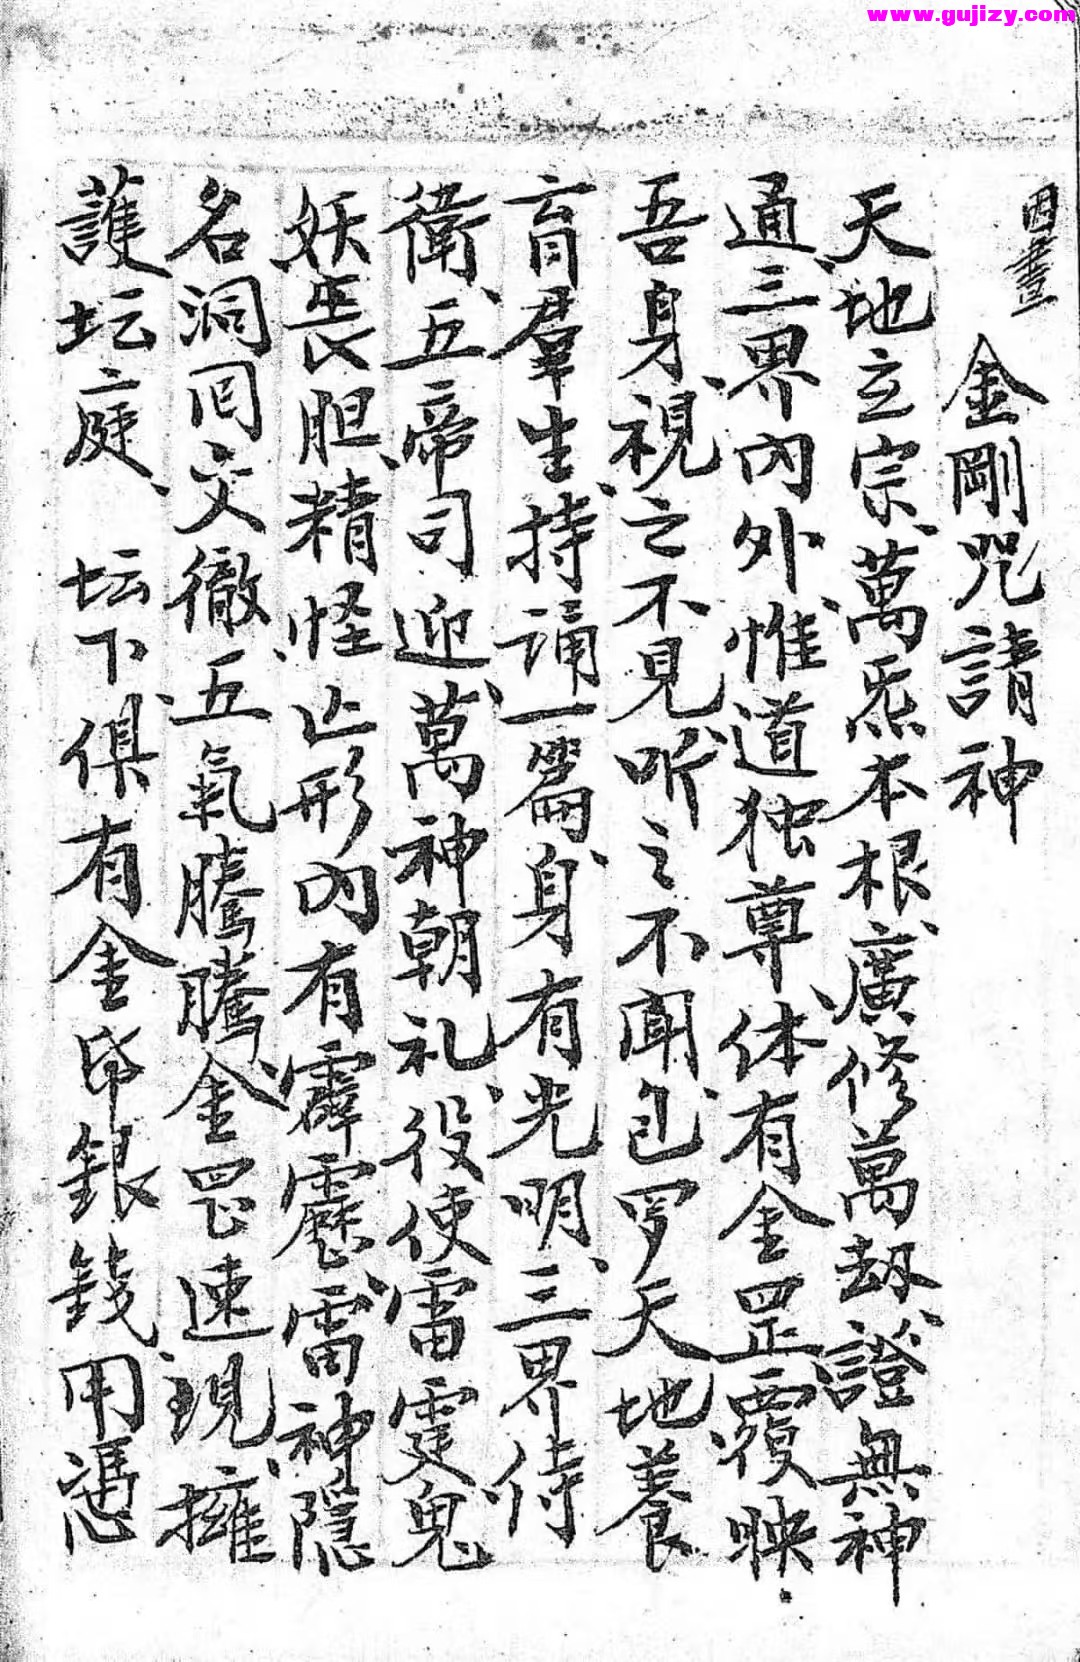 www.gujizy.com
因畫
金剛咒請神
天地立宗、萬炁本根、廣修萬劫、證無神
通、三界內外、惟道独尊、体有金罡、覆映
吾身、視之不見、听之不聞、包罗天地、養
育羣生、持誦一篇、身有光明、三界侍
衛、五帝司迎、萬神朝礼、役使雷霆、鬼
妖丧胆、精怪亾形、內有霹靂、雷神隠
名、洞囘交徹、五氣騰騰、金罡速現、擁
護坛庭、坛下俱有金帋銀錢用憑